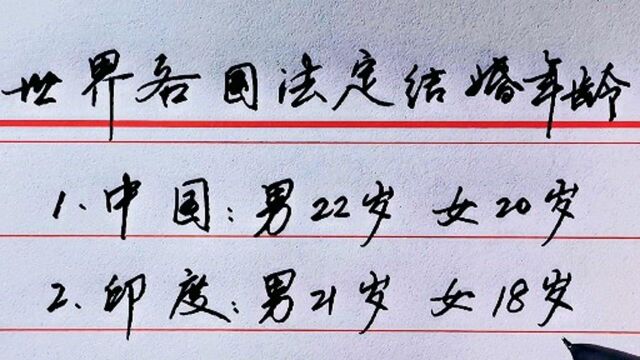 世界各国法定结婚年龄
1.中国:男22岁 女20岁
2.印度:男21岁 女18岁